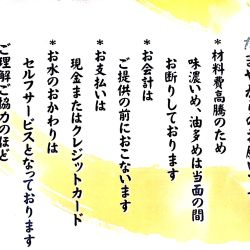 *材料費高騰のため
味濃いめ、油多めは当面の間
お断りしております
*お会計は
ご提供の前におこないます
*お支払いは
現金またはクレジットカード
*お水のおかわりは
セルフサービスとなっております
ご理解ご協力のほど